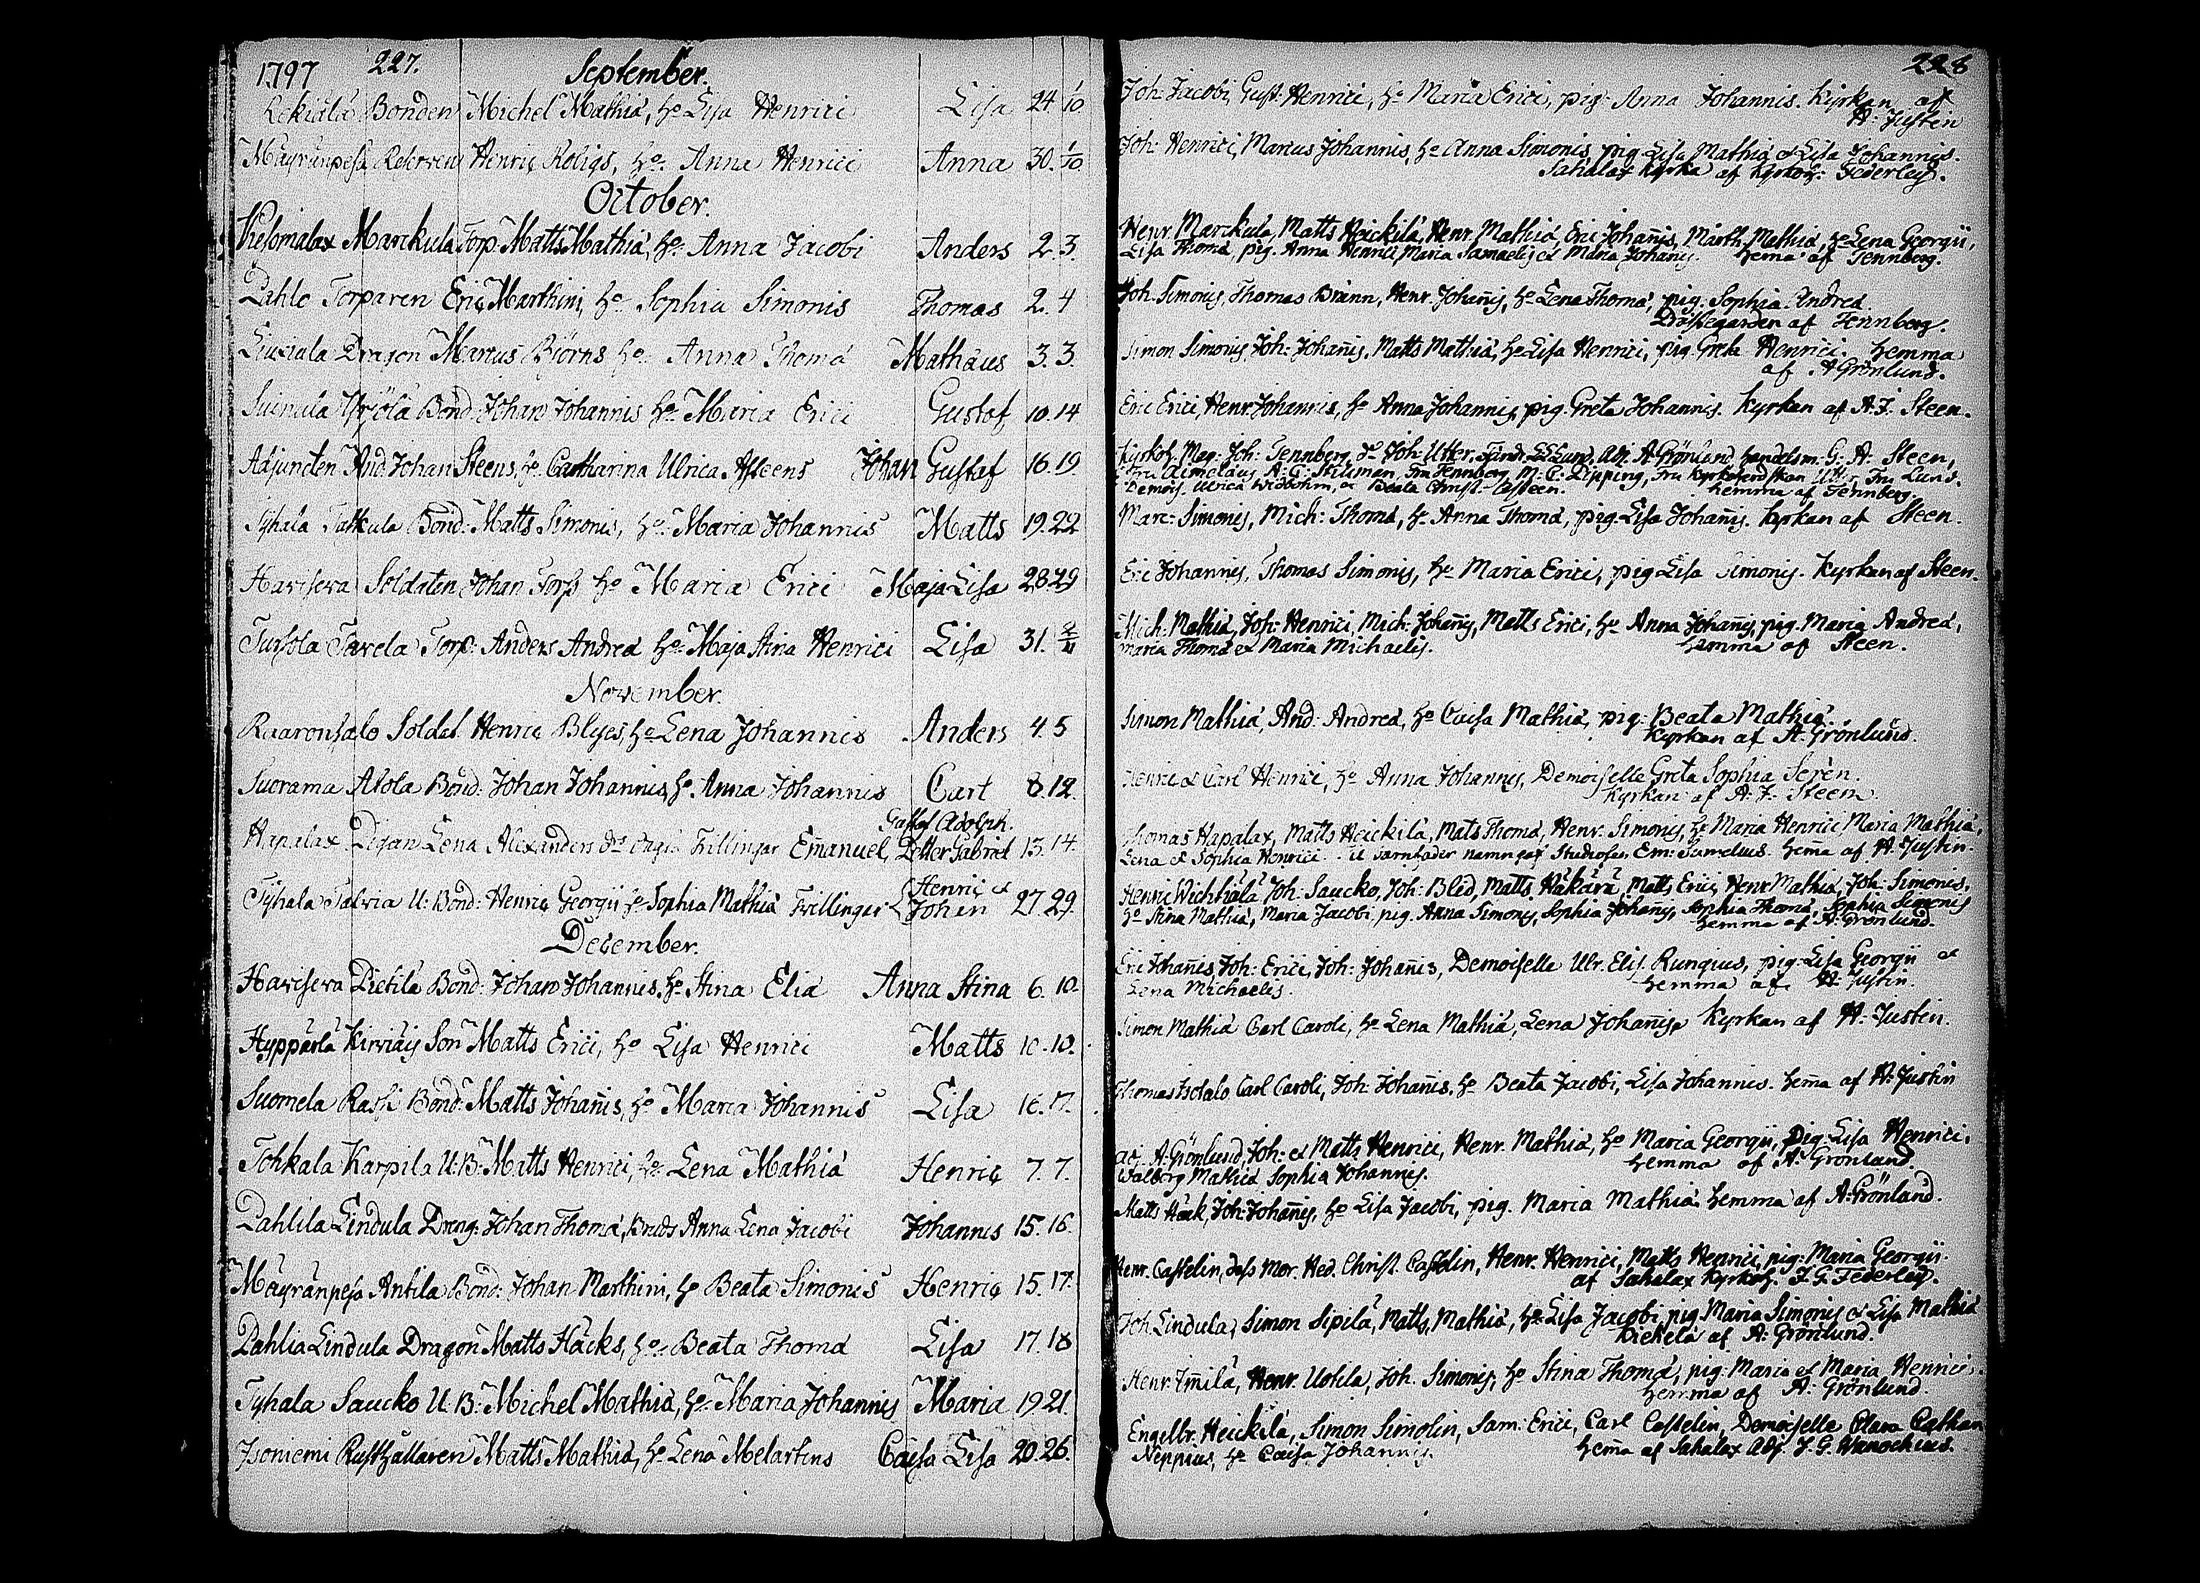 1797 227. September.
Bonden Michel Mathiæ, ho Lisa Henrici Lisa 24 1/10
Mäyränpesä Henric Roligs, ho: Anna Henrici Anna 30. 1/10
October.
Marckula Torp. Matts Mathiæ, ho: Anna Jacobi Anders 2. 3.
Pahlo Torparen Eric Marthini, ho Sophia Simonis Thomas 2. 4
Liuxiala Dragon Marcus Björns ho: Anna Thomæ Mathäus 3. 3.
Suinula Yrjölä Bond: Johan Johannis ho: Maria Erici Gustaf 10. 14
Adjuncten And. Johan Steens, ho Catharina Ulrica Asteens Johan Gustaf 16. 19
Tyhälä Bond: Matts Simonis, ho: Maria Johannis Matts 19. 22
Haviseva Soldaten Johan Torp ho Maria Erici Maja Lisa 28. 29
Tursola Tavela Torp: Anders Andreæ ho: Maja Stina Henrici Lisa 31. 2/11
November.
Raaronsalo Soldat Henric Blyes, ho Lena Johannis Anders 4. 5
Suorama Bond: Johan Johannis, ho Anna Johannis Carl 8. 12.
Gustaf Adolph.
Hapalax Pigan Lena Alexanders dr Trillingar Emanuel, Petter Gabriel 13. 14.
Tyhälä U: Bond: Henric Georgii ho Sophia Mathiæ Tvillingar Henric et Johan 27. 29.
December.
Haviseva Pietilä Bond: Johan Johannis, ho Stina Eliæ Anna Stina 6. 10
Hyppärlä Son Matts Erici, ho Lisa Henrici Matts 10. 10.
Suomela Bond: Matts Johannis, ho Maria Johannis Lisa 16. 17.
Tohkala Karpila U: B: Matts Henrici, ho: Lena Mathiæ Henric 7. 7.
Pahlila Lindula Dreng: Johan Thomæ, Anna Lena Jacobi Johannes 15. 16.
Mäyränpesä Antila Bond: Johan Marthini, ho Beata Simonis Henric 15. 17.
Pahlila Lindula Dragon Matts Häcks, ho: Beata Thomæ Lisa 17. 18
Tyhälä Saucko U: B: Michel Mathiæ, ho: Maria Johannis Maria 19. 21.
Isoniemi Rusthållaren Matts Mathiæ, ho Lena Melartins Caisa Lisa 20. 26.
228
Joh: Jacobi, Gust: Henrici, ho Maria Erici, pig: Anna Johannis. Kyrkan af
A: Justen
Joh: Henrici, Marcus Johannis, ho Anna Simonis, pig. Lisa Mathiæ et Lisa Johannis.
Sahalax Kyrka af Kyrkoh: Federley.
Henr. Marckula, Matts Heickilä, Henr. Mathiæ, Eric Johañis, Marth. Mathiæ, ho Lena Georgii,
Lisa Thomæ, pig. Anna Henrici, Maria Samuelis et Maria Johanis. hema af Tennberg.
Joh. Simonis, Thomas Bränn, Henr. Johañis, ho Lena Thomæ, pig. Sophia Andreæ
af Tennberg.
Simon Simonis, Joh: Johañis, Matts Mathiæ, ho Lisa Henrici, pig. Greta Henrici. hemma
af A Grönlund.
Eric Erici, Henr. Johannis, ho Anna Johannis, pig. Greta Johannis. Kyrkan af A: J. Steen.
Kyrkoh. Mag: Joh: Tennberg, Joh: Utter, Lund, Adj. A Grönlund, handelsm. G: A: Steen,
Fru Tennberg, Fru Lund,
Demois. Ulrica et Beata Christ. Asteen. hemma af Tennberg.
Marc: Simonis, Mich: Thomæ, ho Anna Thomæ, pig. Lisa Johañis. kyrkan af Steen.
Eric Johannis, Thomas Simonis, ho Maria Erici, pig. Lisa Simonis. Kyrkan af Steen.
Mich: Mathiæ, Joh: Henrici, Mich: Johañis, Matts Erici, ho Anna Johañis, pig. Maria Andreæ,
Maria Thomæ et Maria Michaelis. hemma af Steen.
Simon Mathiæ, And: Andreæ, ho Caisa Mathiæ, pig: Beata Mathiæ.
Kyrkan af A: Grönlund.
Henric et Carl Henrici, ho Anna Johannis, Demoiselle Greta Sophia Serèn.
Kyrkan af A: J: Steen.
Thomas Hapalax, Matts Heickilä, Mats Thomæ, Henr. Simonis, ho Maria Henrici, Maria Mathiæ,
Lena et Sophia Henrici. hema af A: Justin.
Joh: Saucko, Joh: Matts Erici, Henr Mathiæ, Joh: Simonis,
ho Stina Mathiæ, Maria Jacobi, pig. Anna Simonis, Sophia Johañis, Sophia Thomæ, Sophia Simonis
hemma af A: Grönlund.
Eric Johañis, Joh: Erici, Joh: Johañis, Demoiselle Ulr. Elis. Rungius, pig. Lisa Georgii et
Lena Michaelis. hemma af A: Justin.
Simon Mathiæ Carl Caroli, ho Lena Mathiæ, Lena Johañis. Kyrkan af A: Justin.
Thomas Isotalo Carl Caroli, Joh: Johañis, ho Beata Jacobi, Lisa Johannis. hema af A: Justin
Adj. A: Grönlund, Joh: et Matts Henrici, Henr. Mathiæ, ho Maria Georgii, pig. Lisa Henrici,
Walborg Mathiæ Sophia Johannis. hemma af A: Grönlund.
Matts Häck, Joh: Johañis, ho Lisa Jacobi, pig. Maria Mathiæ hemma af A: Grönlund.
Henr. Castelin, dess Mor. Hed. Christ. Castelin, Henr. Henrici, Matts Henrici, pig: Maria Georgii
af Sahalax Kyrkoh. J. G. Federley.
Joh: Lindula, Simon Sipilä, Matts Mathiæ, ho Lisa Jacobi, pig. Maria Simonis et Lisa Mathiæ
af A: Grönlund.
Henr. Uotila, Joh. Simonis, ho Stina Thomæ, pig: Maria et Maria Henrici.
hemma af A: Grönlund.
Engelbr. Heickilä, Simon Simolin, Sam: Erici, Carl Castelin, Demoiselle Clara Cathar.
Neppius, ho Caisa Johannis. hema af Sahalax Adj. J. G. Wanochius.